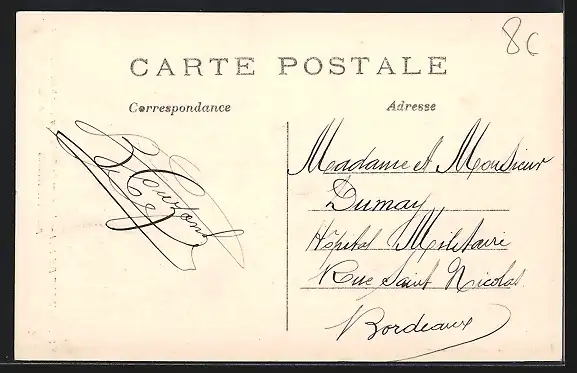 8c
CARTE POSTALE
Correspondance
Adresse
Madame et Monsieur
Dumay
Hôpital Militaire
Rue Saint Nicolas
Bordeaux